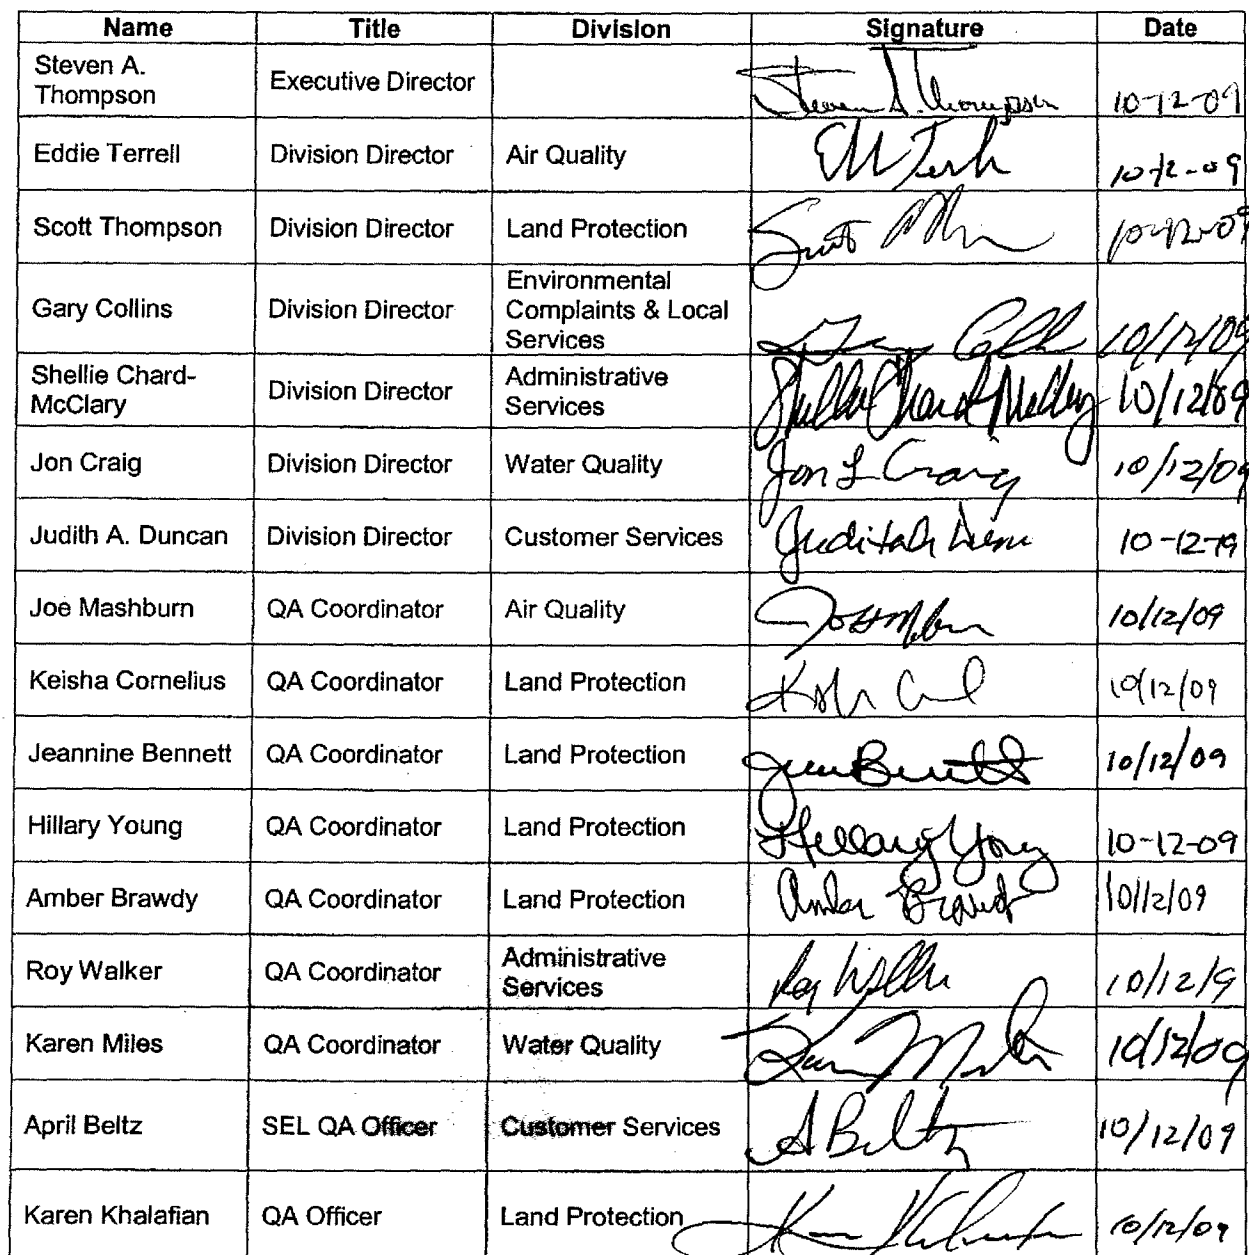 Name Title Division Signature Date
Steven A. Thompson Executive Director Steven A. Thompson 10-12-09
Eddie Terrell Division Director Air Quality 10-12-09
Scott Thompson Division Director Land Protection Scott 10-12-09
Gary Collins Division Director Environmental Complaints & Local Services Gary Collins 10/12/09
Shellie Chard-McClary Division Director Administrative Services Shellie Chard-McClary 10/12/09
Jon Craig Division Director Water Quality Jon L Craig 10/12/09
Judith A. Duncan Division Director Customer Services 10-12-09
Joe Mashburn QA Coordinator Air Quality 10/12/09
Keisha Cornelius QA Coordinator Land Protection 10/12/09
Jeannine Bennett QA Coordinator Land Protection 10/12/09
Hillary Young QA Coordinator Land Protection Hillary Young 10-12-09
Amber Brawdy QA Coordinator Land Protection Amber Brawdy 10/12/09
Roy Walker QA Coordinator Administrative Services Roy Walker 10/12/9
Karen Miles QA Coordinator Water Quality Karen Miles 10/12/09
April Beltz SEL QA Officer Customer Services A Beltz 10/12/09
Karen Khalafian QA Officer Land Protection 10/12/09